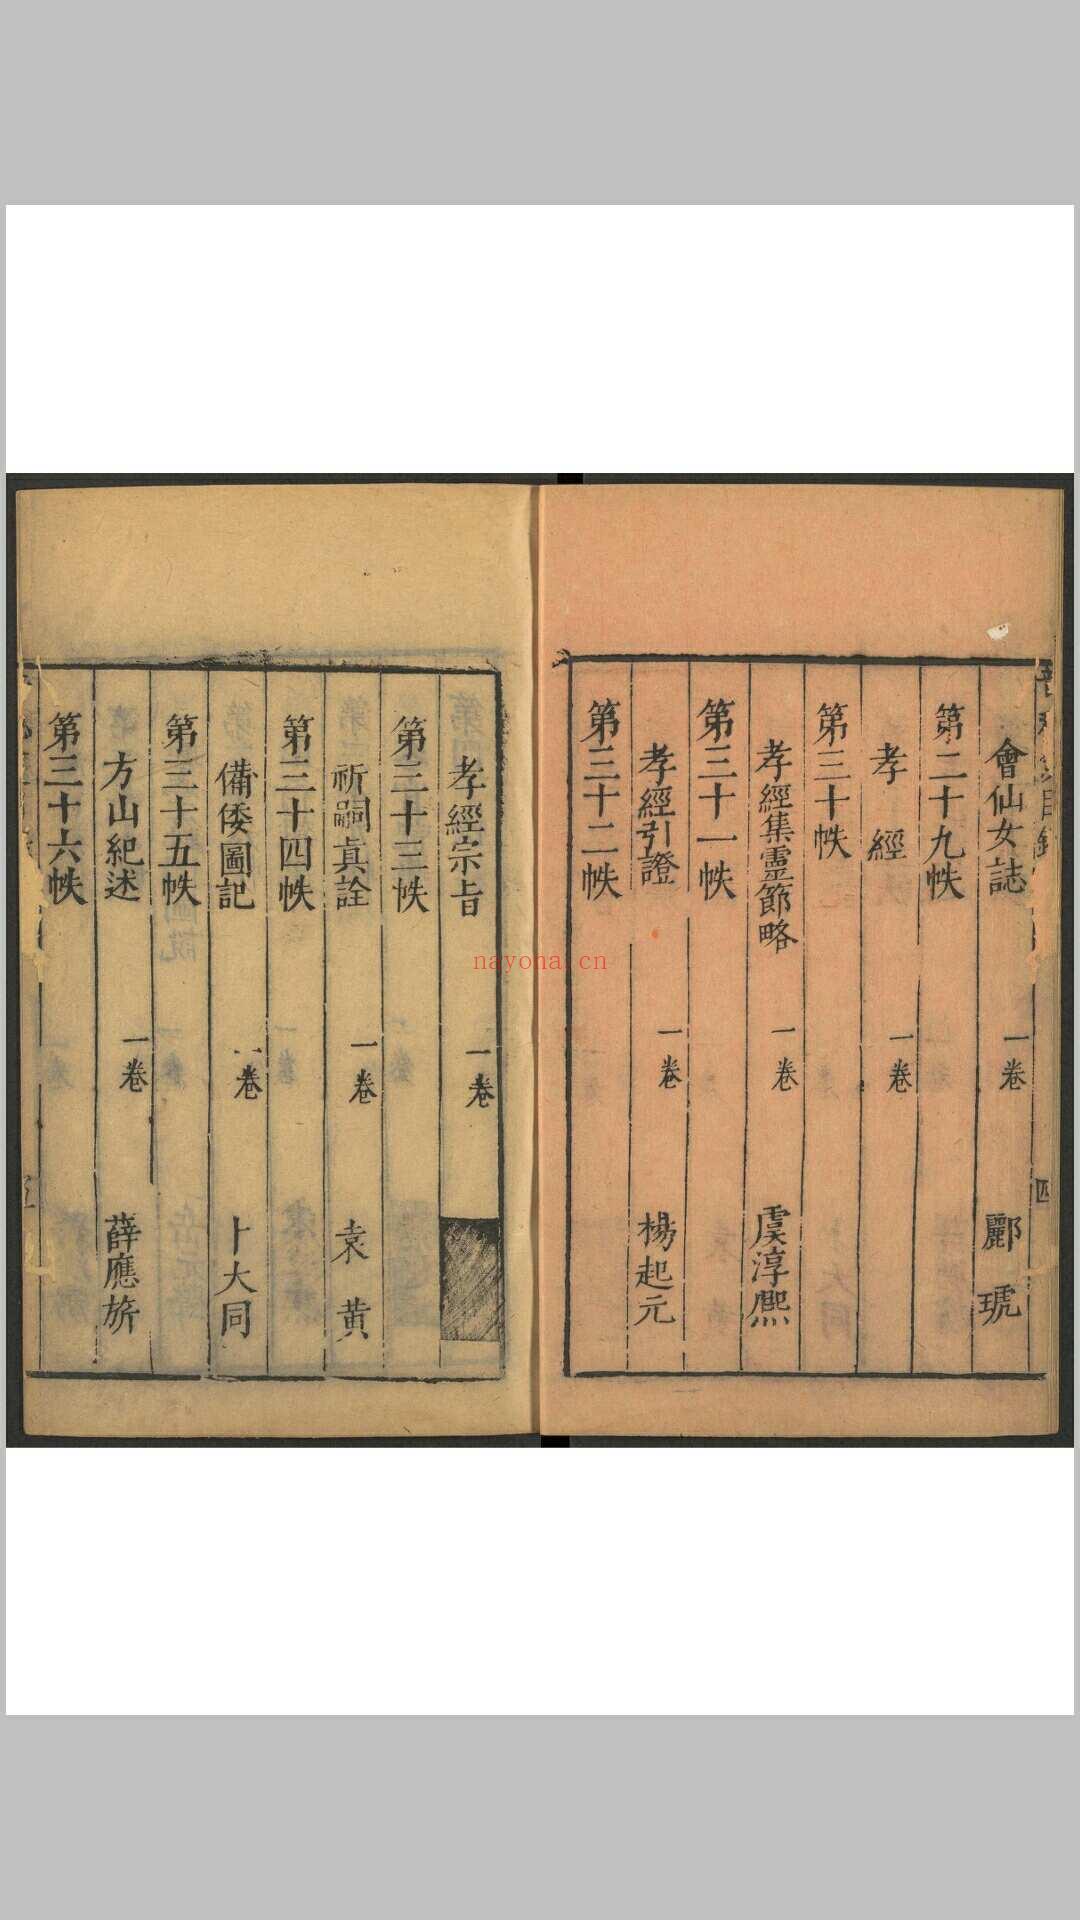 會仙女誌 一卷 酈琥
第二十九帙
孝經 一卷
第三十帙
孝經集靈節略 一卷 虞淳熙
第三十一帙
孝經引證 一卷 楊起元
第三十二帙
孝經宗旨 一卷
第三十三帙
祈嗣真詮 一卷 袁黃
第三十四帙
備倭圖記 一卷 卜大同
第三十五帙
方山紀述 一卷 薛應旂
第三十六帙
四
五
nayona.cn